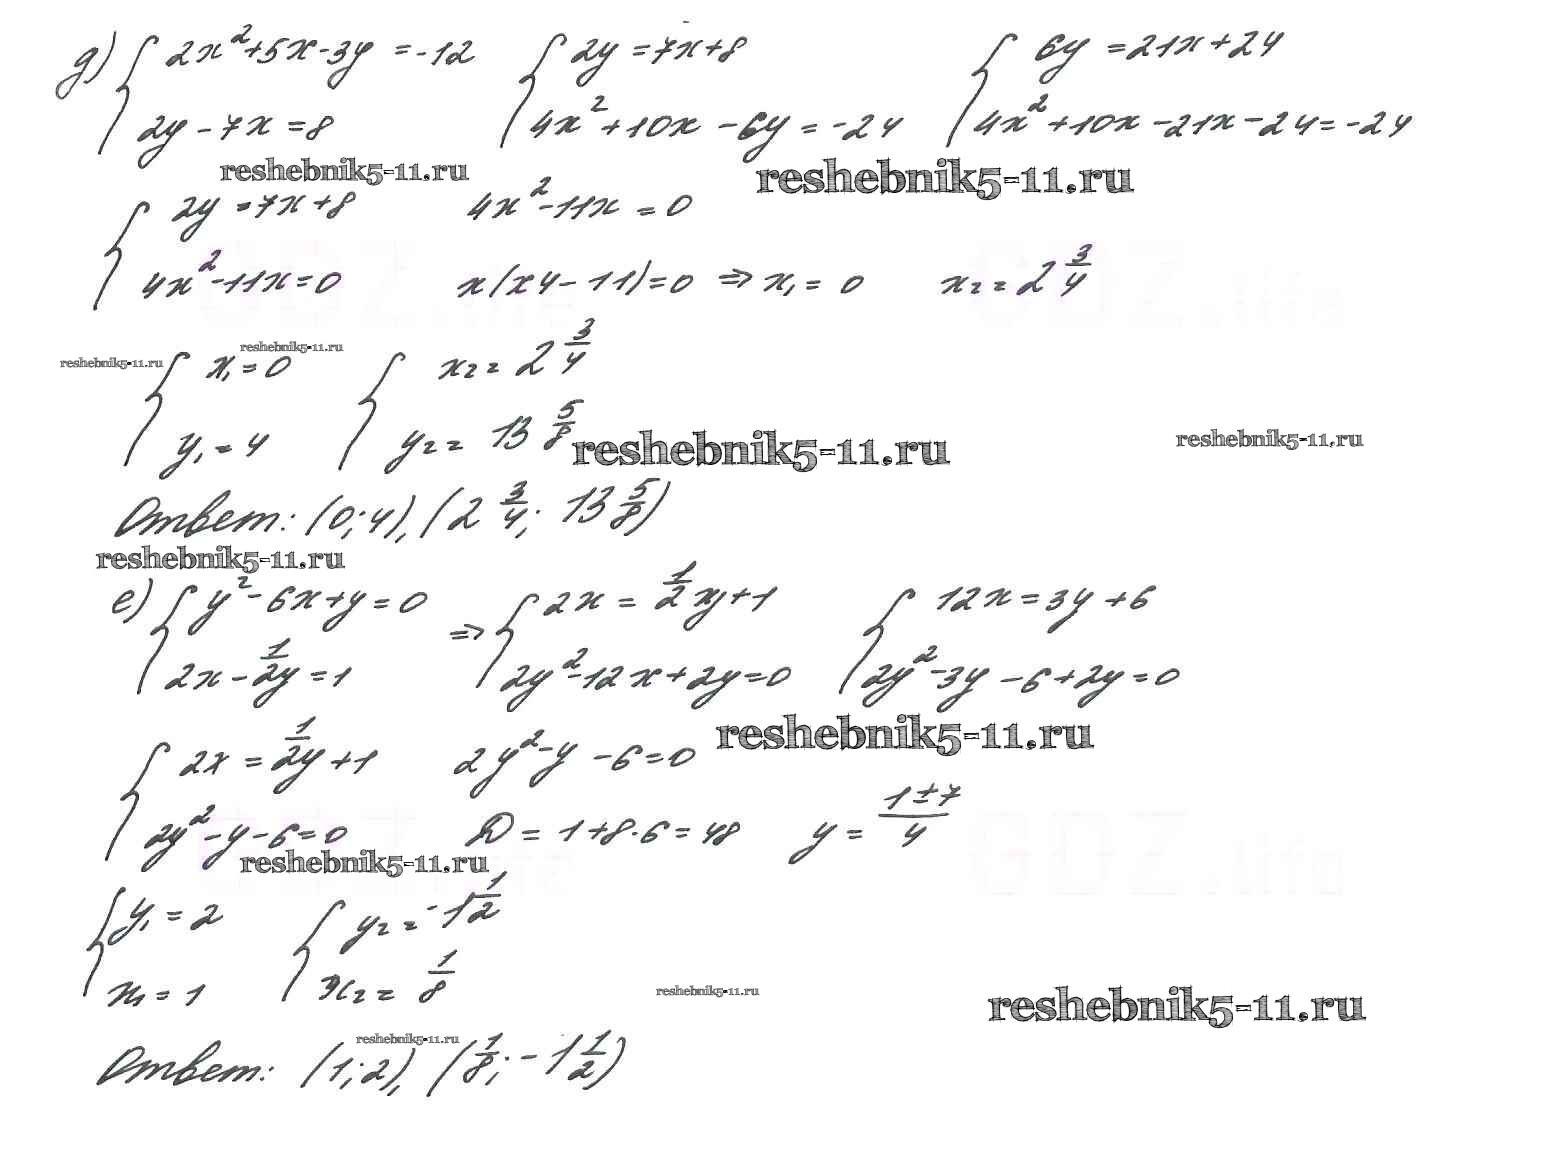 д) { 2x²+5x-3y = -12 { 2y = 7x+8 { 6y = 21x+24
2y - 7x = 8 4x²+10x - 6y = -24 4x²+10x-21x-24=-24
reshebnik5-11.ru reshebnik5-11.ru
{ 2y = 7x+8 4x²-11x = 0
4x²-11x=0 x(x4-11)=0 => x₁ = 0 x₂ = 2 3/4
reshebnik5-11.ru reshebnik5-11.ru
{ x₁ = 0 { x₂ = 2 3/4
y₁ = 4 y₂ = 13 5/8
reshebnik5-11.ru reshebnik5-11.ru
Ответ: (0;4), (2 3/4; 13 5/8)
reshebnik5-11.ru
е) { y²-6x+y=0 => { 2x = 1/2 y+1 { 12x = 3y+6
2x - 1/2y = 1 2y²-12x+2y=0 2y²-3y-6+2y=0
reshebnik5-11.ru
{ 2x = 1/2y +1 2y²-y-6=0
2y²-y-6=0 D = 1+8·6=48 y = 1±7/4
reshebnik5-11.ru
{ y₁ = 2 { y₂ = -1 1/2
x₁ = 1 x₂ = 1/8
reshebnik5-11.ru reshebnik5-11.ru
reshebnik5-11.ru
Ответ: (1;2), (1/8; -1 1/2)